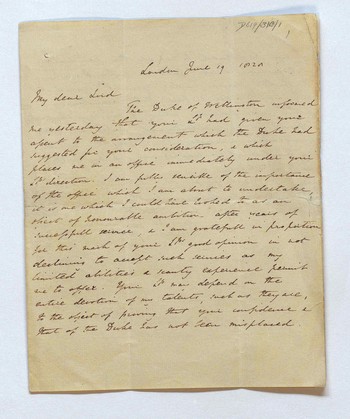 London June 19 1828
My dear Lord
The Duke of Wellington informed
me yesterday that your Lp had given your
assent to the arrangement which the Duke had
suggested for your consideration, & which
places me in an office immediately under your
Lp direction. I am fully sensible of the importance
of the office which I am about to undertake,
it is one which I could have looked to as an
object of honourable ambition after years of
successful service, & I am gratefull in proportion
for this mark of your Lps good opinion in not
declining to accept such services as my
limited abilities & scanty experience permit
me to offer. Your Lp may depend on the
entire devotion of my talents, such as they are,
to the object of proving that your confidence &
that of the Duke has not been misplaced.